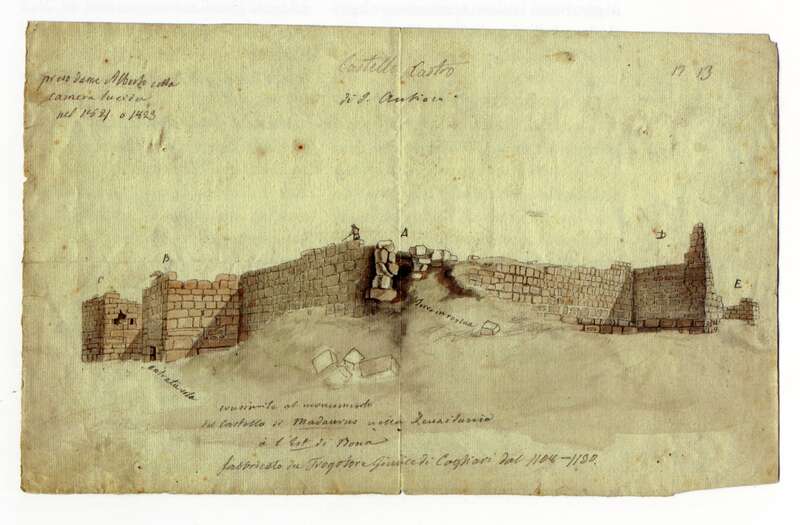 preso da me Alberto colla
camera lucida
nel 1821 o 1823
Castello Castro
di S. Antioco
12 13
A
B
C
D
E
in rovina
entratuccia
consimile al monumento
del Castello di Madaurus nella
a l'Est di Bona
fabbricato da Trogotore Giudice di Cagliari dal 1108-1130